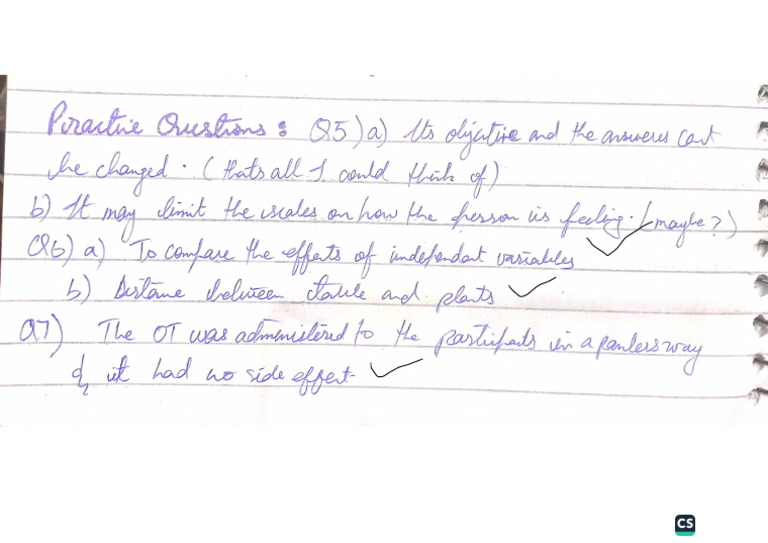 Practice Questions : Q5) a) Its objective and the answeres cant
be changed. (thats all I could think of)
b) It may limit the scales on how the person is feeling. (maybe?)
Q6) a) To compare the effects of independent variables
b) Distame between table and plants
Q7) The OT was administered to the participats in a panless way
& it had no side effect.
CS